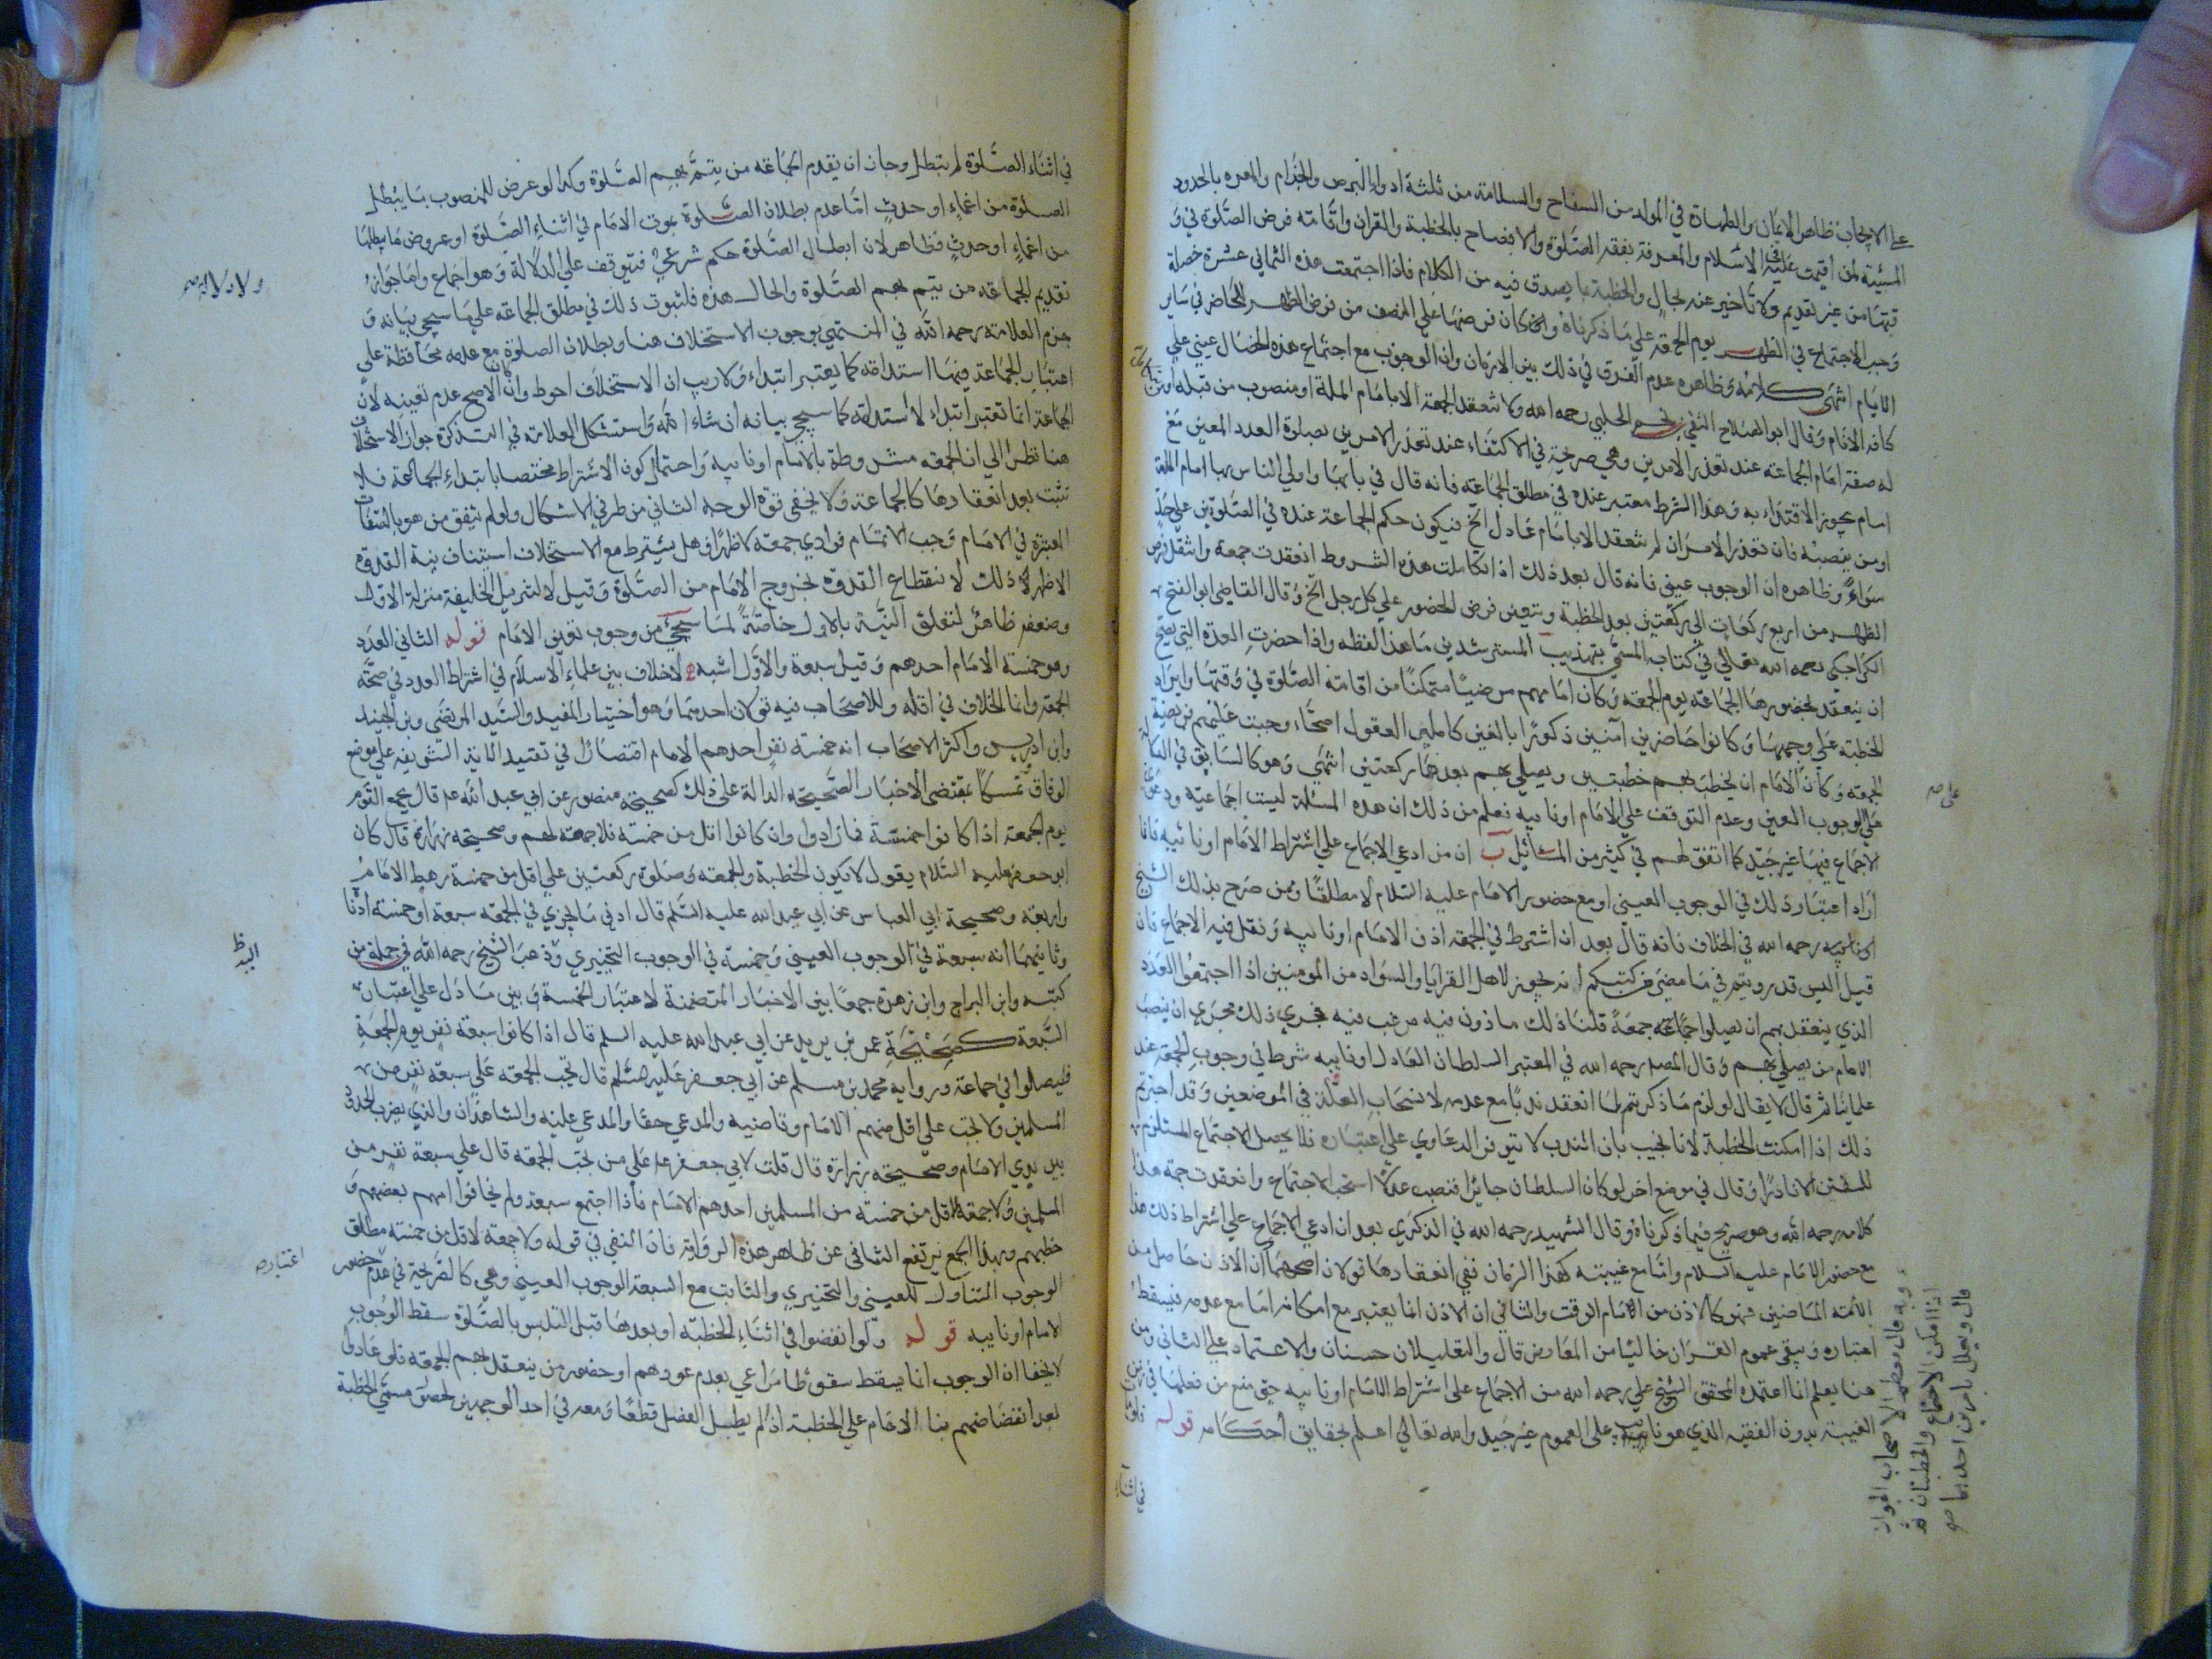 على الايجاب ظاهر الايمان والطهارة في المولد من السفاح والسلامة من ثلثة ادواء البرص والجذام والمعرة بالحدود
المشينة لمن اقيمت عليه في الاسلام والمعرفة بفقه الصلوة والافصاح بالخطبة والقران واقامته فرض الصلوة في و
قتها من غير تقديم ولا تاخير عنه بحال والخطبة بما يصدق فيه من الكلام فاذا اجتمعت هذه الثماني عشرة خصلة
وجب الاجتماع في الظهر يوم الجمعة على ما ذكرناه وكان فرضها على النصف من فرض الظهر للحاضر في ساير
الايام انتهى كلامه وظاهره عدم الفرق في ذلك بين الازمان وان الوجوب مع اجتماع هذه الخصال عيني على
كافة الانام وقال ابو الصلاح التقي بن نجم الحلبي رحمه الله ولا تنعقد الجمعة الا بامام الملة او منصوب من قبله او بمن يتكامل
له صفة امام الجماعة عند تعذر الامرين وهي صريحة في الاكتفاء عند تعذر الامرين بصلوة العدد المعين مع
امام يجوز الاقتداء به وهذا الشرط معتبر عنده في مطلق الجماعة فانه قال في بابها واولى الناس بها امام الملة
او من ينصبه فان تعذر الامران لم تنعقد الا بامام عادل الخ فيكون حكم الجماعة عنده في الصلوتين على حد
سواء وظاهره ان الوجوب عيني فانه قال بعد ذلك اذا تكاملت هذه الشروط انعقدت جمعة وانتقل فرض
الظهر من اربع ركعات الى ركعتين بعد الخطبة وتعين فرض الحضور على كل رجل الخ وقال القاضي ابو الفتح
الكراجكي رحمه الله تعالى في كتابه المسمى بتهذيب المسترشدين ما هذا لفظه واذا حضرت العدة التي يصح
ان ينعقد بحضورها الجماعة يوم الجمعة وكان امامهم مرضيا متمكنا من اقامة الصلوة في وقتها وايراد
الخطبة على وجهها وكانوا حاضرين آمنين ذكورا بالغين كاملين العقول اصحاء وجبت عليهم فريضة
الجمعة وكان الامام ان يخطب بهم خطبتين ويصلي بهم بعدها ركعتين انتهى وهو كالسابق في الدلالة
على الوجوب العيني وعدم التوقف على الامام او نايبه فعلم من ذلك ان هذه المسئلة ليست اجماعية ودعوى
الاجماع فيها غير جيد كما اتفق لهم في كثير من المسائل ب ان من ادعى الاجماع على اشتراط الامام او نائبه فانما
اراد اعتبار ذلك في الوجوب العيني او مع حضور الامام عليه السلام لا مطلقا وممن صرح بذلك الشيخ
رحمه الله في الخلاف فانه قال بعد ان اشترط في الجمعة اذن الامام او نايبه ونقل فيه الاجماع فان
قيل اليس قد رويتم في ما مضى من كتبكم انه يجوز لاهل القرايا والسواد من المؤمنين اذا اجتمعوا العدد
الذي ينعقد بهم ان يصلوا جماعة جمعة قلنا ذلك ماذون فيه مرغب فيه فجرى ذلك مجرى ان ينصب
الامام من يصلي بهم وقال المص رحمه الله في المعتبر السلطان العادل او نايبه شرط في وجوب الجمعة عند
علمائنا ثم قال لا يقال لو لزم ما ذكرتم لما انعقد ندبا مع عدمه لانسحاب العلة في الموضعين وقد اجزتم
ذلك اذا امكنت الخطبة لانا نجيب بان الندب لا تتوفر الدعاوي على اعتباره فلا يحصل الاجتماع المستلزم
للفتن الا نادرا وقال في موضع اخر لو كان السلطان جايرا فنصب عدلا استحب الاجتماع وانعقدت جمعة هذا
كلامه رحمه الله وهو صريح فيما ذكرناه وقال الشهيد رحمه الله في الذكرى بعد ان ادعى الاجماع على اشتراط ذلك هذا
مع حضور الامام عليه السلام واما مع غيبته كهذا الزمان ففي انعقادها قولان اصحهما ان الاذن حاصل من
الائمة الماضين فهو كالاذن من الامام الوقت والثاني ان الاذن انما يعتبر مع امكانه اما مع عدمه فيسقط
اعتباره ويبقى عموم القران خاليا من المعارض قال والتعليلان حسنان والاعتماد على الثاني ومن
هنا يعلم انما اعتمده المحقق الشيخ علي رحمه الله من الاجماع على اشتراط الامام او نايبه حتى منع من فعلها في زمن
الغيبة بدون الفقيه الذي هو نايب على العموم غير جيد والله تعالى اعلم بحقايق احكامه قوله فلو مات
في اثناء
على صح
وبه قال معظم الاصحاب الجواز
اذا امكن الاجتماع والخطبتان ثم
قال ويعلل بامرين احدهما صح
في اثناء الصلوة لم تبطل وجاز ان يقدم الجماعة من يتم بهم الصلوة وكذا لو عرض للمنصوب ما يبطل
الصلوة من اغماء او حدث اما عدم بطلان الصلوة بموت الامام في اثناء الصلوة او عروض ما يبطلها
من اغماء او حدث فظاهر لان ابطال الصلوة حكم شرعي فيتوقف على الدلالة وهو اجماع واما جواز
تقديم الجماعة من يتم بهم الصلوة والحال هذه فلثبوت ذلك في مطلق الجماعة على ما سيجئ بيانه و
جزم العلامة رحمه الله في المنتهى بوجوب الاستخلاف هنا وبطلان الصلوة مع عدمه محافظة على
اعتبار الجماعة فيها استدامة كما يعتبر ابتداء ولا ريب ان الاستخلاف احوط وان كان الاصح عدم تعينه لان
الجماعة انما تعتبر ابتداء لا استدامة كما سيجئ بيانه ان شاء الله واستشكل العلامة في التذكرة جواز الاستخلاف
هنا نظرا الى ان الجمعة مشروطة بالامام او نايبه واحتمال كون الاشتراط مختصا بابتداء الجماعة فلا
تثبت بعد انعقادها كالجماعة ولا يخفى قوة الوجه الثاني من طرفي الاشكال ولو لم يتفق من هو بالصفات
المعتبرة في الامام وجب الاتمام فرادى جمعة لا ظهرا وهل يشترط مع الاستخلاف استيناف نية القدوة
الاظهر ذلك لانقطاع القدوة بخروج الامام من الصلوة وقيل لا لتنزيل الخليفة منزلة الاول
وضعفه ظاهر لتعلق النية بالاول خاصة لما سيجئ من وجوب تعيين الامام قوله الثاني العدد
وهو خمسة الامام احدهم وقيل سبعة والاول اشبه لا خلاف بين علماء الاسلام في اشتراط العدد في صحة
الجمعة وانما الخلاف في اقله وللاصحاب فيه قولان احدهما وهو اختيار المفيد والسيد المرتضى وبن الجنيد
وابن ادريس واكثر الاصحاب انه خمسة نفر احدهم الامام اقتصارا في تقييد الاية الشريفة على موضع
الوفاق وتمسكا بمقتضى الاخبار الصحيحة الدالة على ذلك كصحيحة منصور عن ابي عبد الله ع قال يجمع القوم
يوم الجمعة اذا كانوا خمسة فما زادوا وان كانوا اقل من خمسة فلا جمعة لهم وصحيحة زرارة قال كان
ابو جعفر عليه السلام يقول لا يكون الخطبة والجمعة وصلوة ركعتين على اقل من خمسة رهط الامام
واربعة وصحيحة ابي العباس عن ابي عبد الله عليه السلم قال ادنى ما يجزي في الجمعة سبعة او خمسة ادناه
وثانيهما انه سبعة في الوجوب العيني وخمسة في الوجوب التخييري وذهب الشيخ رحمه الله في جملة من
كتبه وابن البراج وابن زهرة جمعا بين الاخبار المتضمنة لاعتبار الخمسة وبين ما دل على اعتبار
السبعة كصحيحة عمر بن يزيد عن ابي عبد الله عليه السلم قال اذا كانوا سبعة نفر يوم الجمعة
فليصلوا في جماعة ورواية محمد بن مسلم عن ابي جعفر عليه السلم قال تجب الجمعة على سبعة نفر من
المسلمين ولا تجب على اقل منهم الامام وقاضيه والمدعي حقا والمدعي عليه والشاهدان والذي يضرب الحدود
بين يدي الامام وصحيحة زرارة قال قلت لابي جعفر ع على من تجب الجمعة قال على سبعة نفر من
المسلمين ولا جمعة لاقل من خمسة من المسلمين احدهم الامام فاذا اجتمع سبعة ولم يخافوا امهم بعضهم و
خطبهم وبهذا الجمع يرتفع التنافي عن ظاهر هذه الرواية فان النفي في قوله ولا جمعة لاقل من خمسة مطلق
الوجوب المتناول للعيني والتخييري والثابت مع السبعة الوجوب العيني وهي كالصريحة في عدم حضور
الامام او نايبه قوله ولو انفضوا في اثناء الخطبة او بعدها قبل التلبس بالصلوة سقط الوجوب
لا يخفا ان الوجوب انما يسقط سقوطا مراعي بعدم عودهم او حضور من ينعقد بهم الجمعة فلو عادوا
بعد انفضاضهم بنا الامام على الخطبة اذا لم يطل الفصل قطعا ومعه في احد الوجهين لحصول مسمى الخطبة
ولا دلالة صح
اليه ظ
اعتباره